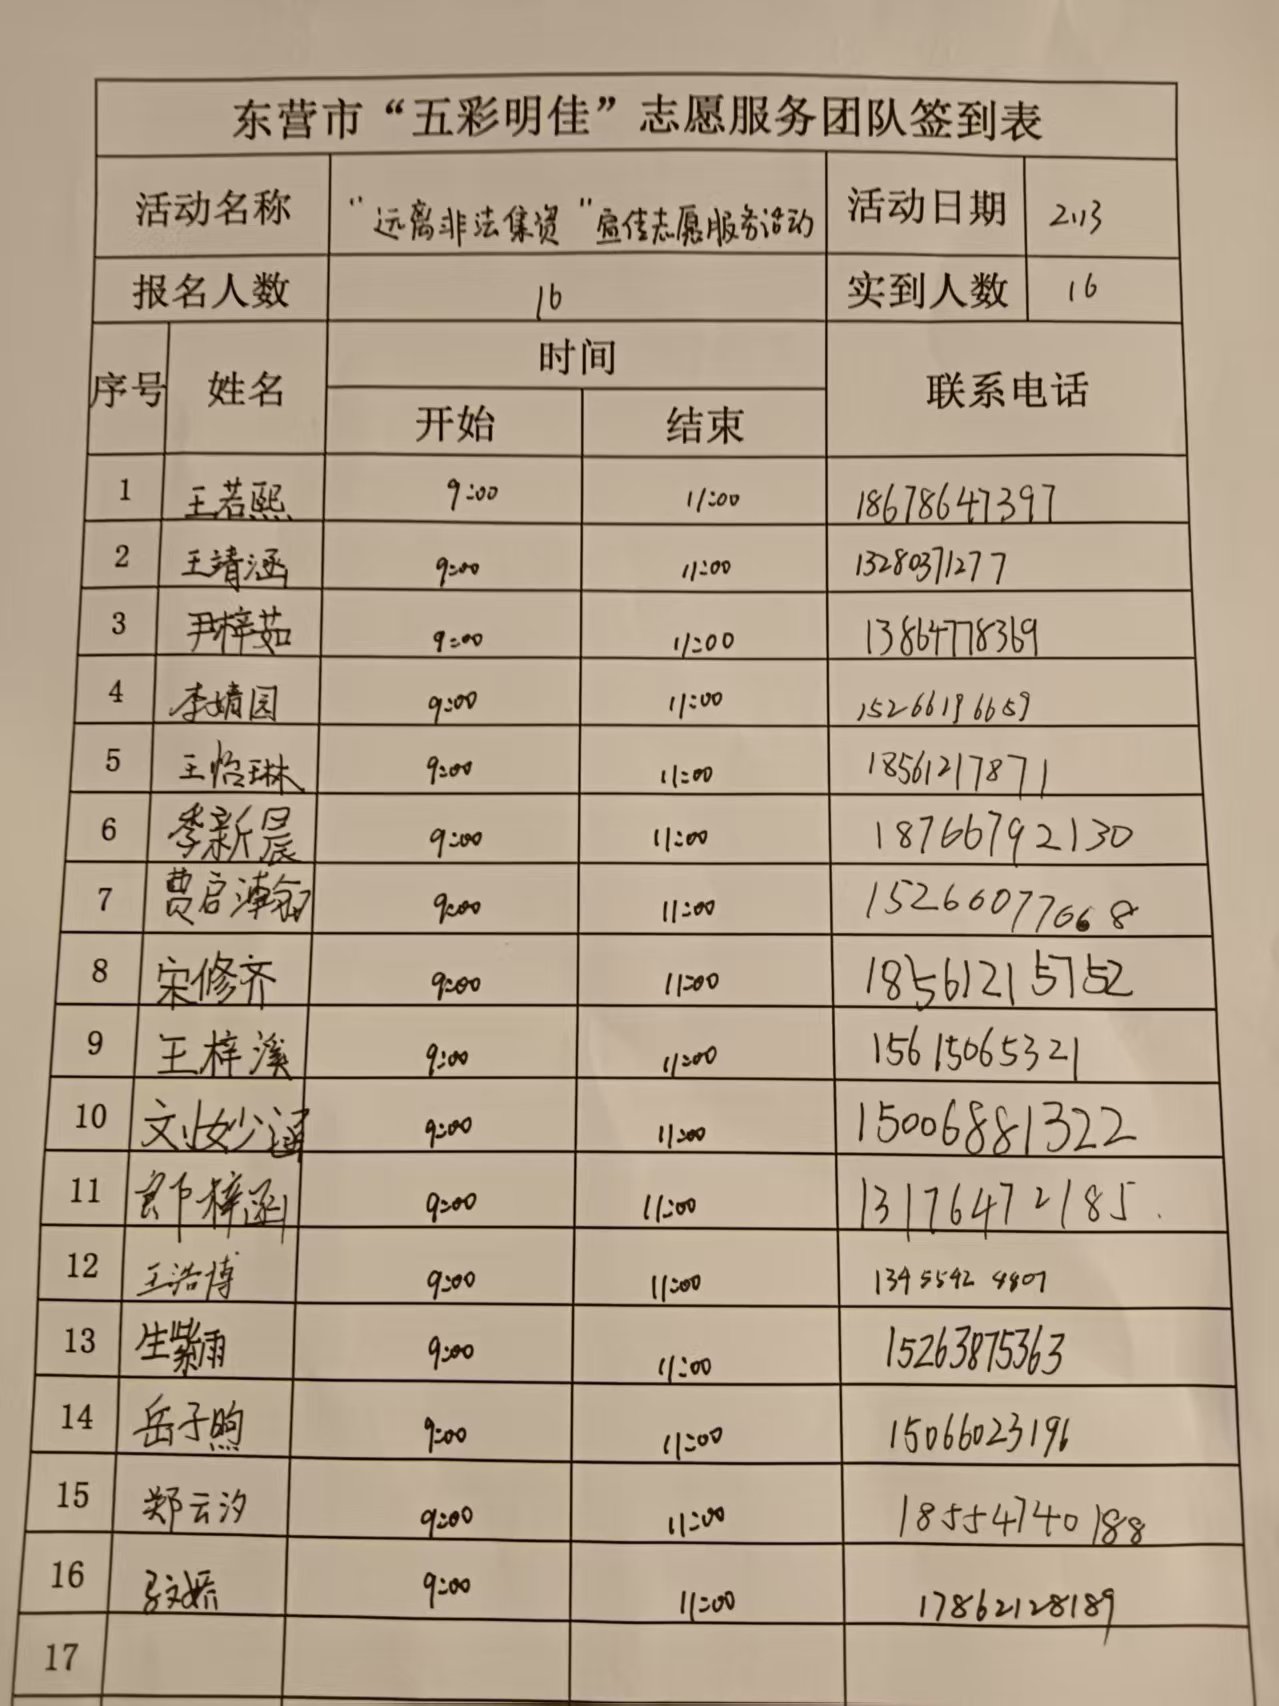 东营市“五彩明佳”志愿服务团队签到表
活动名称 “远离非法集资”宣传志愿服务活动 活动日期 2.13
报名人数 16 实到人数 16
序号 姓名 时间 联系电话
开始 结束
1 王若熙 9:00 11:00 18678647397
2 王靖涵 9:00 11:00 13280371277
3 尹梓茹 9:00 11:00 13864778369
4 李婧园 9:00 11:00 15266196659
5 王怡琳 9:00 11:00 18561217871
6 季新晨 9:00 11:00 18766792130
7 曹启瀚 9:00 11:00 15266077668
8 宋修齐 9:00 11:00 18561215752
9 王梓溪 9:00 11:00 15615065321
10 刘妙涵 9:00 11:00 15006881322
11 郎梓涵 9:00 11:00 13176472185
12 王浩博 9:00 11:00
13 生紫雨 9:00 11:00 15263875363
14 岳子煦 9:00 11:00 15066023196
15 郑云汐 9:00 11:00 18554740188
16 9:00 11:00 17862128189
17